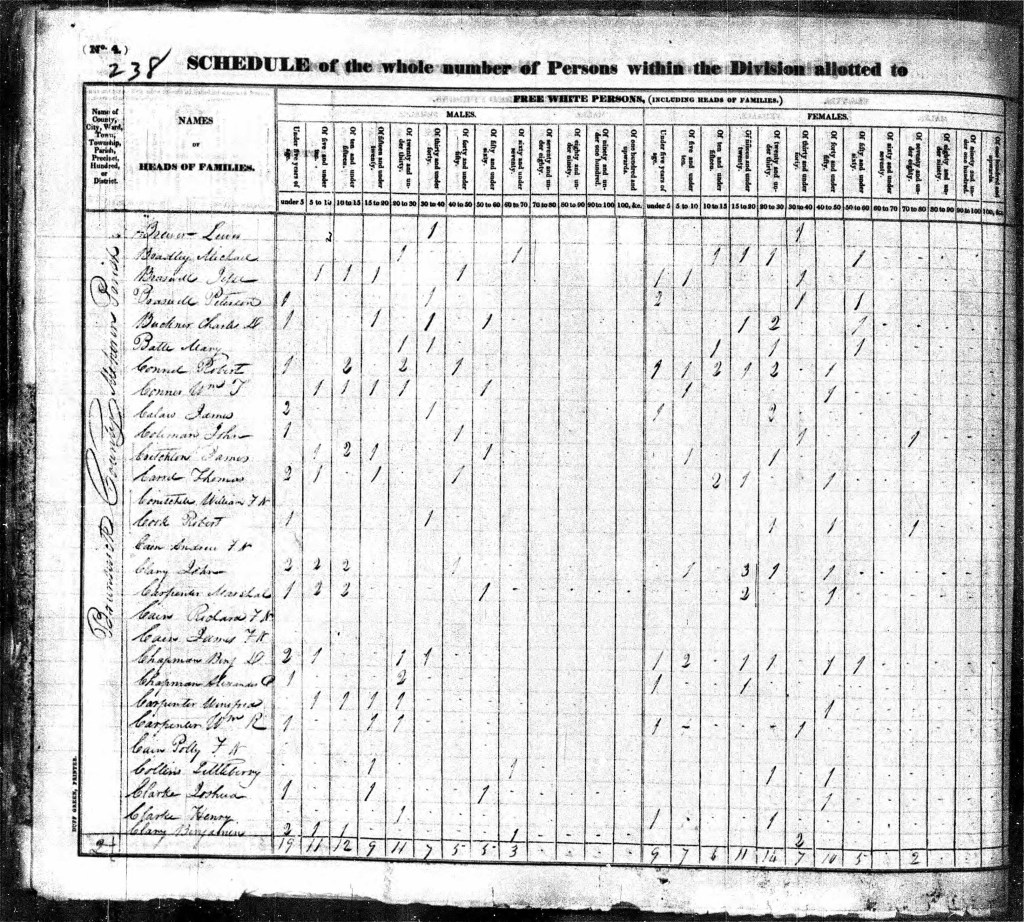 (No. 4.)
238
SCHEDULE of the whole number of Persons within the Division allotted to
Name of County, City, Ward, Town, Township, Parish, Precinct, Hundred, or District.
NAMES
OF
HEADS OF FAMILIES.
FREE WHITE PERSONS, (INCLUDING HEADS OF FAMILIES.)
MALES.
FEMALES.
Under five years of age.
Of five and under ten.
Of ten and under fifteen.
Of fifteen and under twenty.
Of twenty and under thirty.
Of thirty and under forty.
Of forty and under fifty.
Of fifty and under sixty.
Of sixty and under seventy.
Of seventy and under eighty.
Of eighty and under ninety.
Of ninety and under one hundred.
Of one hundred and upwards.
Under five years of age.
Of five and under ten.
Of ten and under fifteen.
Of fifteen and under twenty.
Of twenty and under thirty.
Of thirty and under forty.
Of forty and under fifty.
Of fifty and under sixty.
Of sixty and under seventy.
Of seventy and under eighty.
Of eighty and under ninety.
Of ninety and under one hundred.
Of one hundred and upwards.
under 5 5 to 10 10 to 15 15 to 20 20 to 30 30 to 40 40 to 50 50 to 60 60 to 70 70 to 80 80 to 90 90 to 100 100, &c. under 5 5 to 10 10 to 15 15 to 20 20 to 30 30 to 40 40 to 50 50 to 60 60 to 70 70 to 80 80 to 90 90 to 100 100, &c.
Brunswick County Meherrin Parish
2 1 1
Bradley Michael 1 1 1 1 1 1
Braswell 1 1 1 1 1 1 1
Braswell Peterson 1 1 2 1 1
Buckner Charles D 1 1 1 1 1 2 1
Batte Mary 1 1 1 1 1
Connel Robert 1 2 2 1 1 1 2 1 2 1
Conner Wm T 1 1 1 1 1 1 1
James 2 1 1 2
Coleman John 1 1 1 1
James 1 2 1 1 1 1
Thomas 2 1 1 1 2 1 1
William F N
Cook Robert 1 1 1 1 1
Cain Andrew F N
Clary John 2 2 2 1 1 3 1 1
Carpenter Marshal 1 2 2 1 2 1
Cain Richard F N
Cain James F N
Chapman Benj D 2 1 1 1 1 2 1 1 1 1
Chapman Alexander P 1 2 1 1
Carpenter Winefred 1 1 1 1 1
Carpenter Wm R 1 1 1 1 1
Cain Polly F N
Collins Littleberry 1 1 1 1
Clarke Joshua 1 1 1 1
Clarke Henry 1 1 1
Clary Benjamin 2 1 1 1 2
19 11 12 9 11 7 5 5 3 9 7 6 11 14 7 10 5 2
DUFF GREEN, PRINTER.